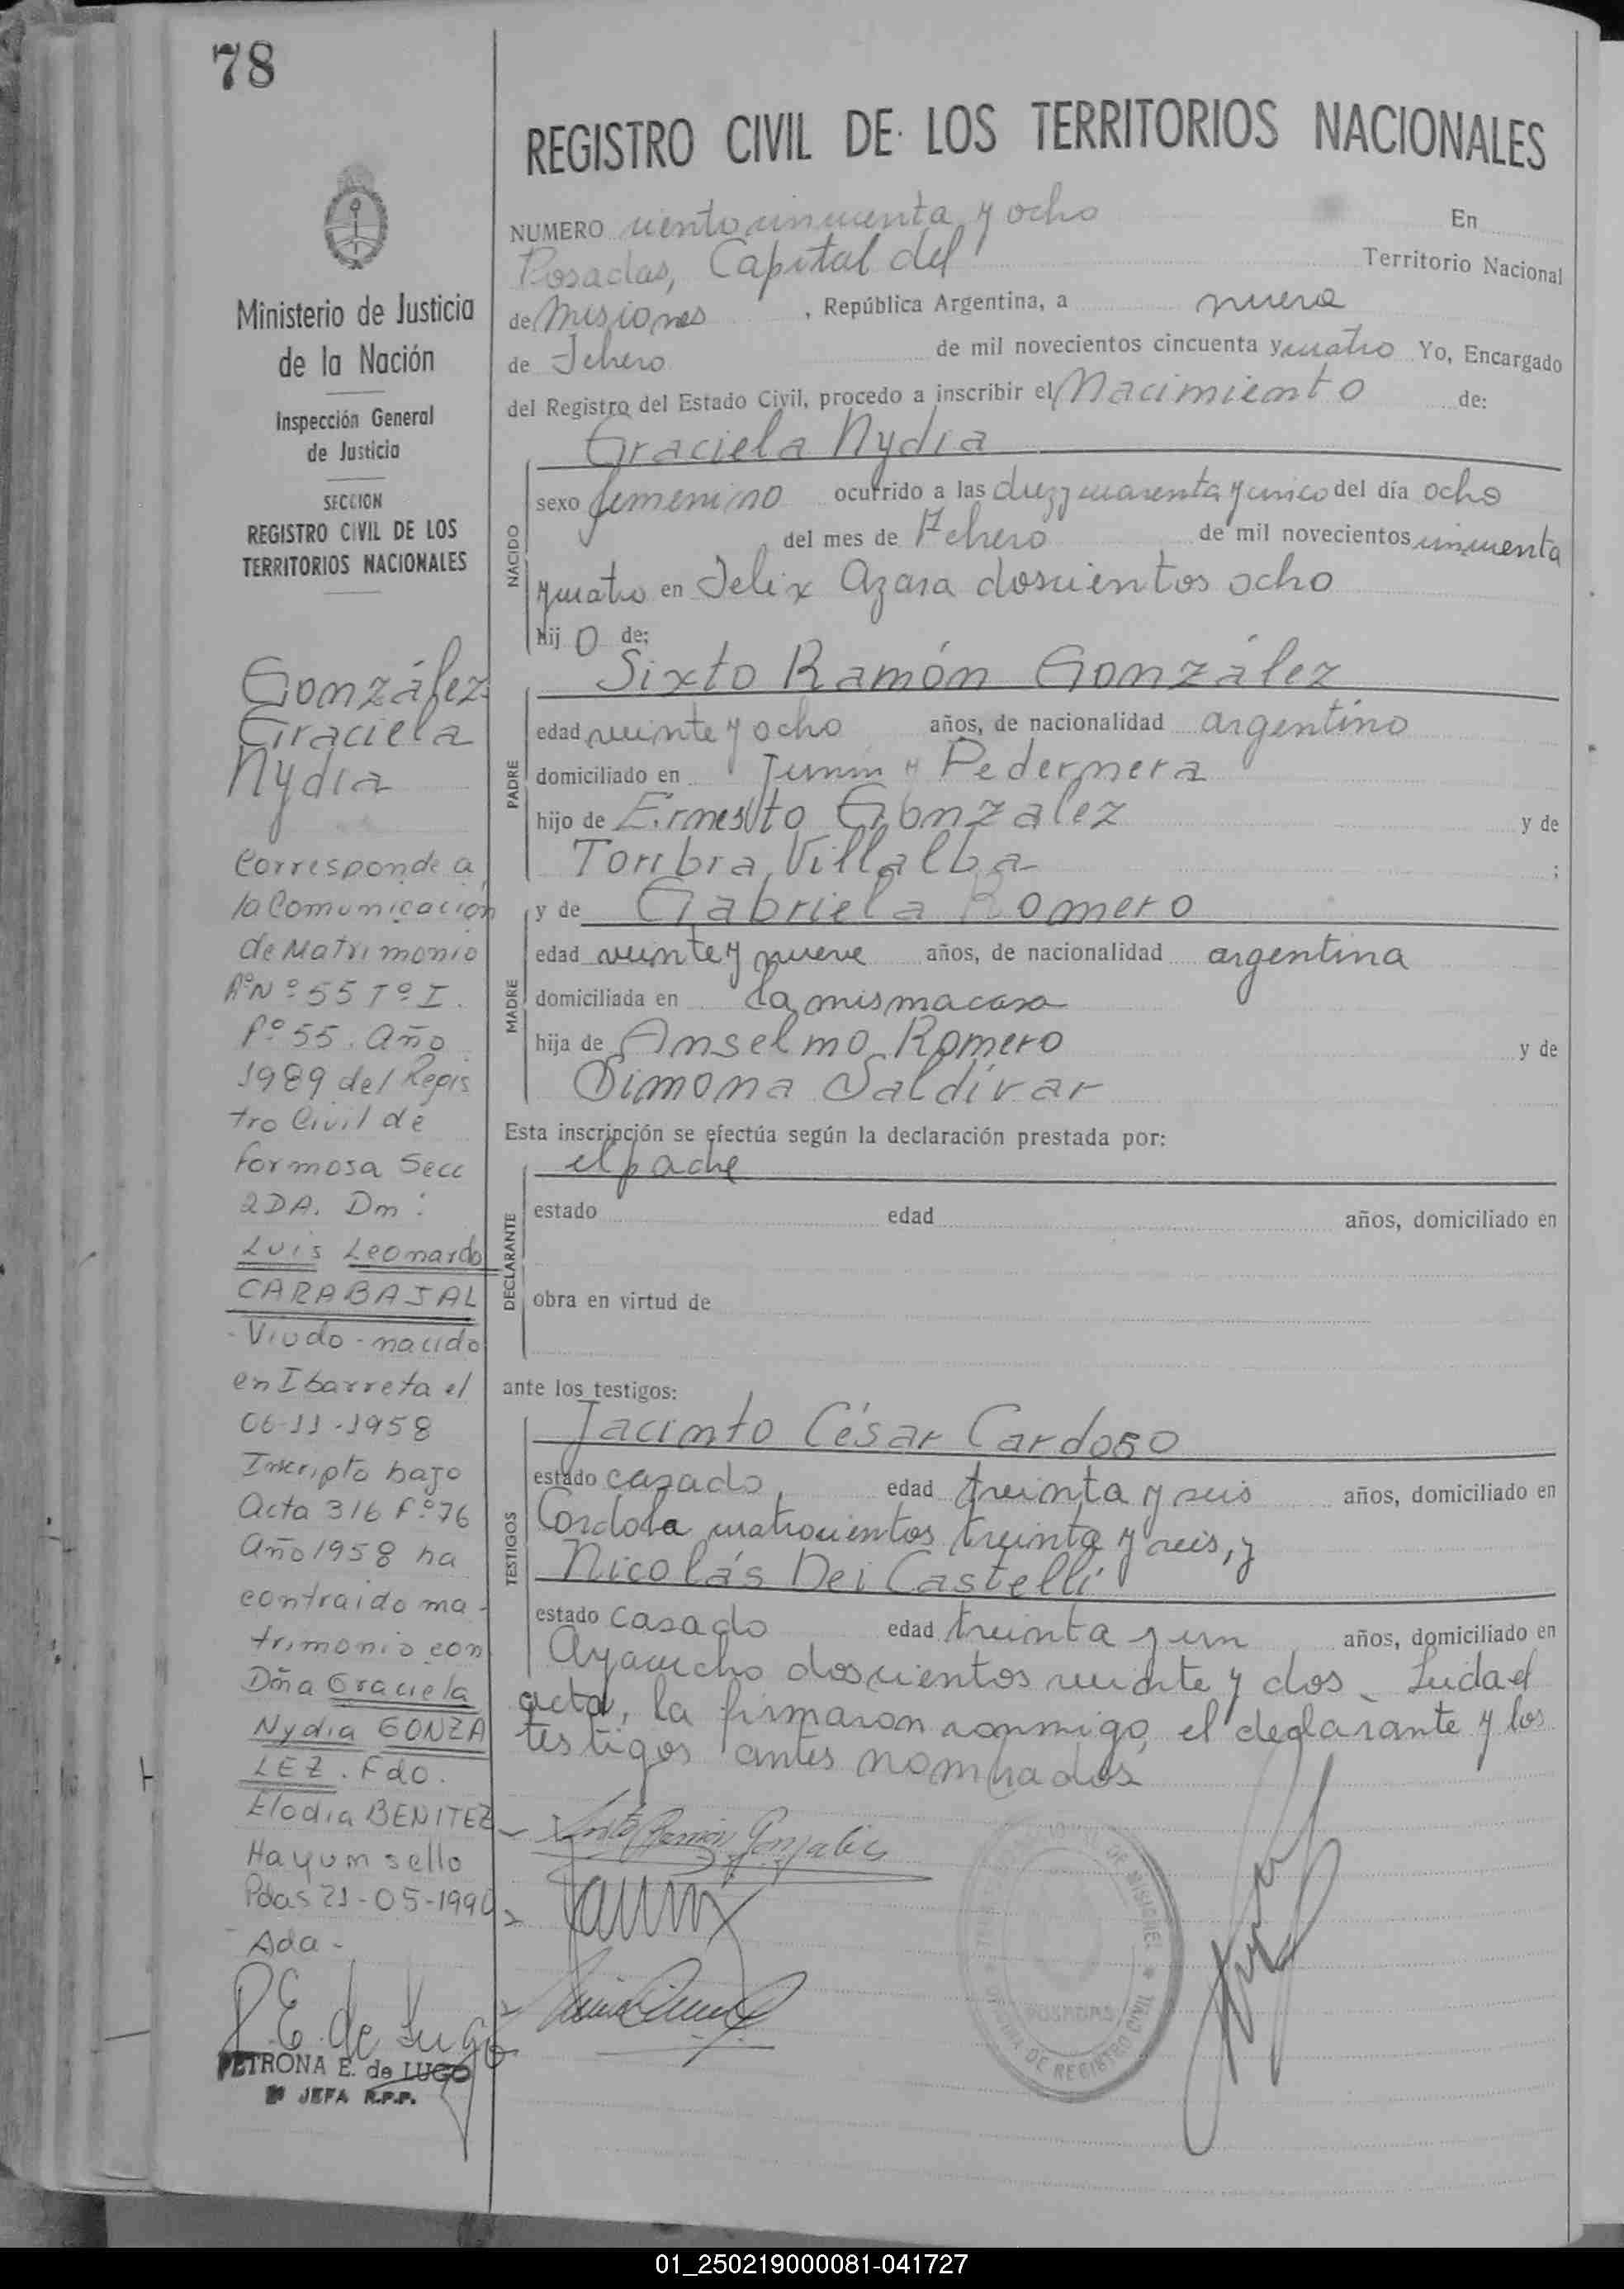 78
REGISTRO CIVIL DE LOS TERRITORIOS NACIONALES
NUMERO ciento cincuenta y ocho En
Posadas, Capital del Territorio Nacional
de Misiones, República Argentina, a nueve
de Febrero de mil novecientos cincuenta y cuatro Yo, Encargado
del Registro del Estado Civil, procedo a inscribir el Nacimiento de:
Graciela Nydia
NACIDO
sexo femenino ocurrido a las diez y cuarenta y cinco del día ocho
del mes de Febrero de mil novecientos cincuenta
y cuatro en Felix Azara doscientos ocho
hij o de:
Sixto Ramón González
PADRE
edad veinte y ocho años, de nacionalidad argentino
domiciliado en Junin y Pedernera
hijo de Ernesto González y de
Toribia Villalba ;
MADRE
y de Gabriela Romero
edad veinte y nueve años, de nacionalidad argentina
domiciliada en la misma casa
hija de Anselmo Romero y de
Simona Saldívar
Esta inscripción se efectúa según la declaración prestada por:
el padre
DECLARANTE
estado edad años, domiciliado en
obra en virtud de
ante los testigos:
Jacinto César Cardoso
TESTIGOS
estado casado, edad treinta y seis años, domiciliado en
Cordoba cuatrocientos treinta y seis, y
Nicolás Dei Castelli
estado casado edad treinta y un años, domiciliado en
Ayacucho doscientos veinte y dos. Leida el
acta, la firmaron conmigo, el declarante y los
testigos antes nombrados
Sixto Ramón González
POSADAS
OFICINA DE REGISTRO CIVIL
Ministerio de Justicia
de la Nación
Inspección General
de Justicia
SECCION
REGISTRO CIVIL DE LOS
TERRITORIOS NACIONALES
González
Graciela
Nydia
Corresponde a
la Comunicación
de Matrimonio
Aº Nº 55 Tº I.
Fº 55. Año
1989 del Regis
tro Civil de
Formosa Secc
2DA. Dm:
Luis Leonardo
CARABAJAL
- Viudo - nacido
en Ibarreta el
06-11-1958
Inscripto bajo
Acta 316 Fº 76
Año 1958 ha
contraido ma-
trimonio con
Dña Graciela
Nydia GONZA
LEZ. Fdo.
Elodia BENITEZ
Hay un sello
Pdas 21-05-1990
Ada -
P. E. de Lugo
PETRONA E. de LUGO
JEFA R.P.P.
01_250219000081-041727